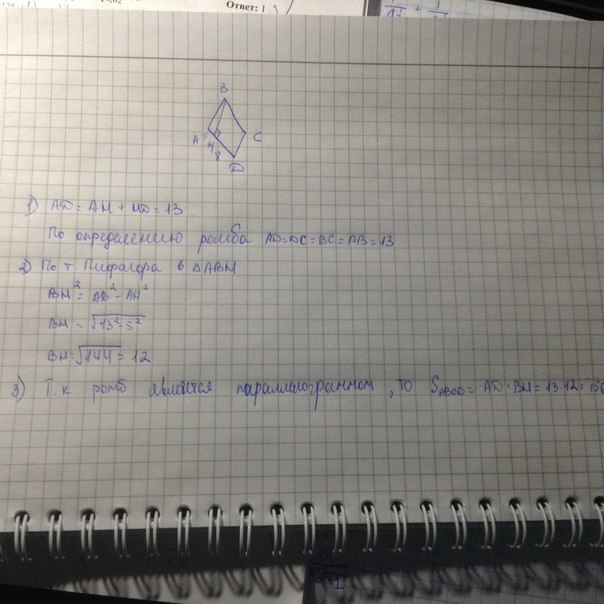 Ответ: 1
B
A
C
5
H
8
D
1) AD = AH + HD = 13
По определению ромба AD=DC=BC=AB=13
2) По т. Пифагора в ΔABH
BH² = AB² - AH²
BH = √13²-5²
BH=√144 = 12
3) Т.к ромб является параллилограммом, то S ABCD = AD·BH = 13·12 =